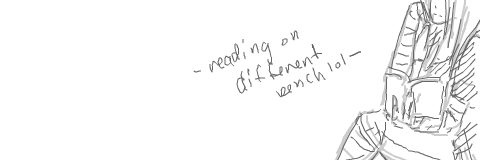 - reading on
different
bench lol -